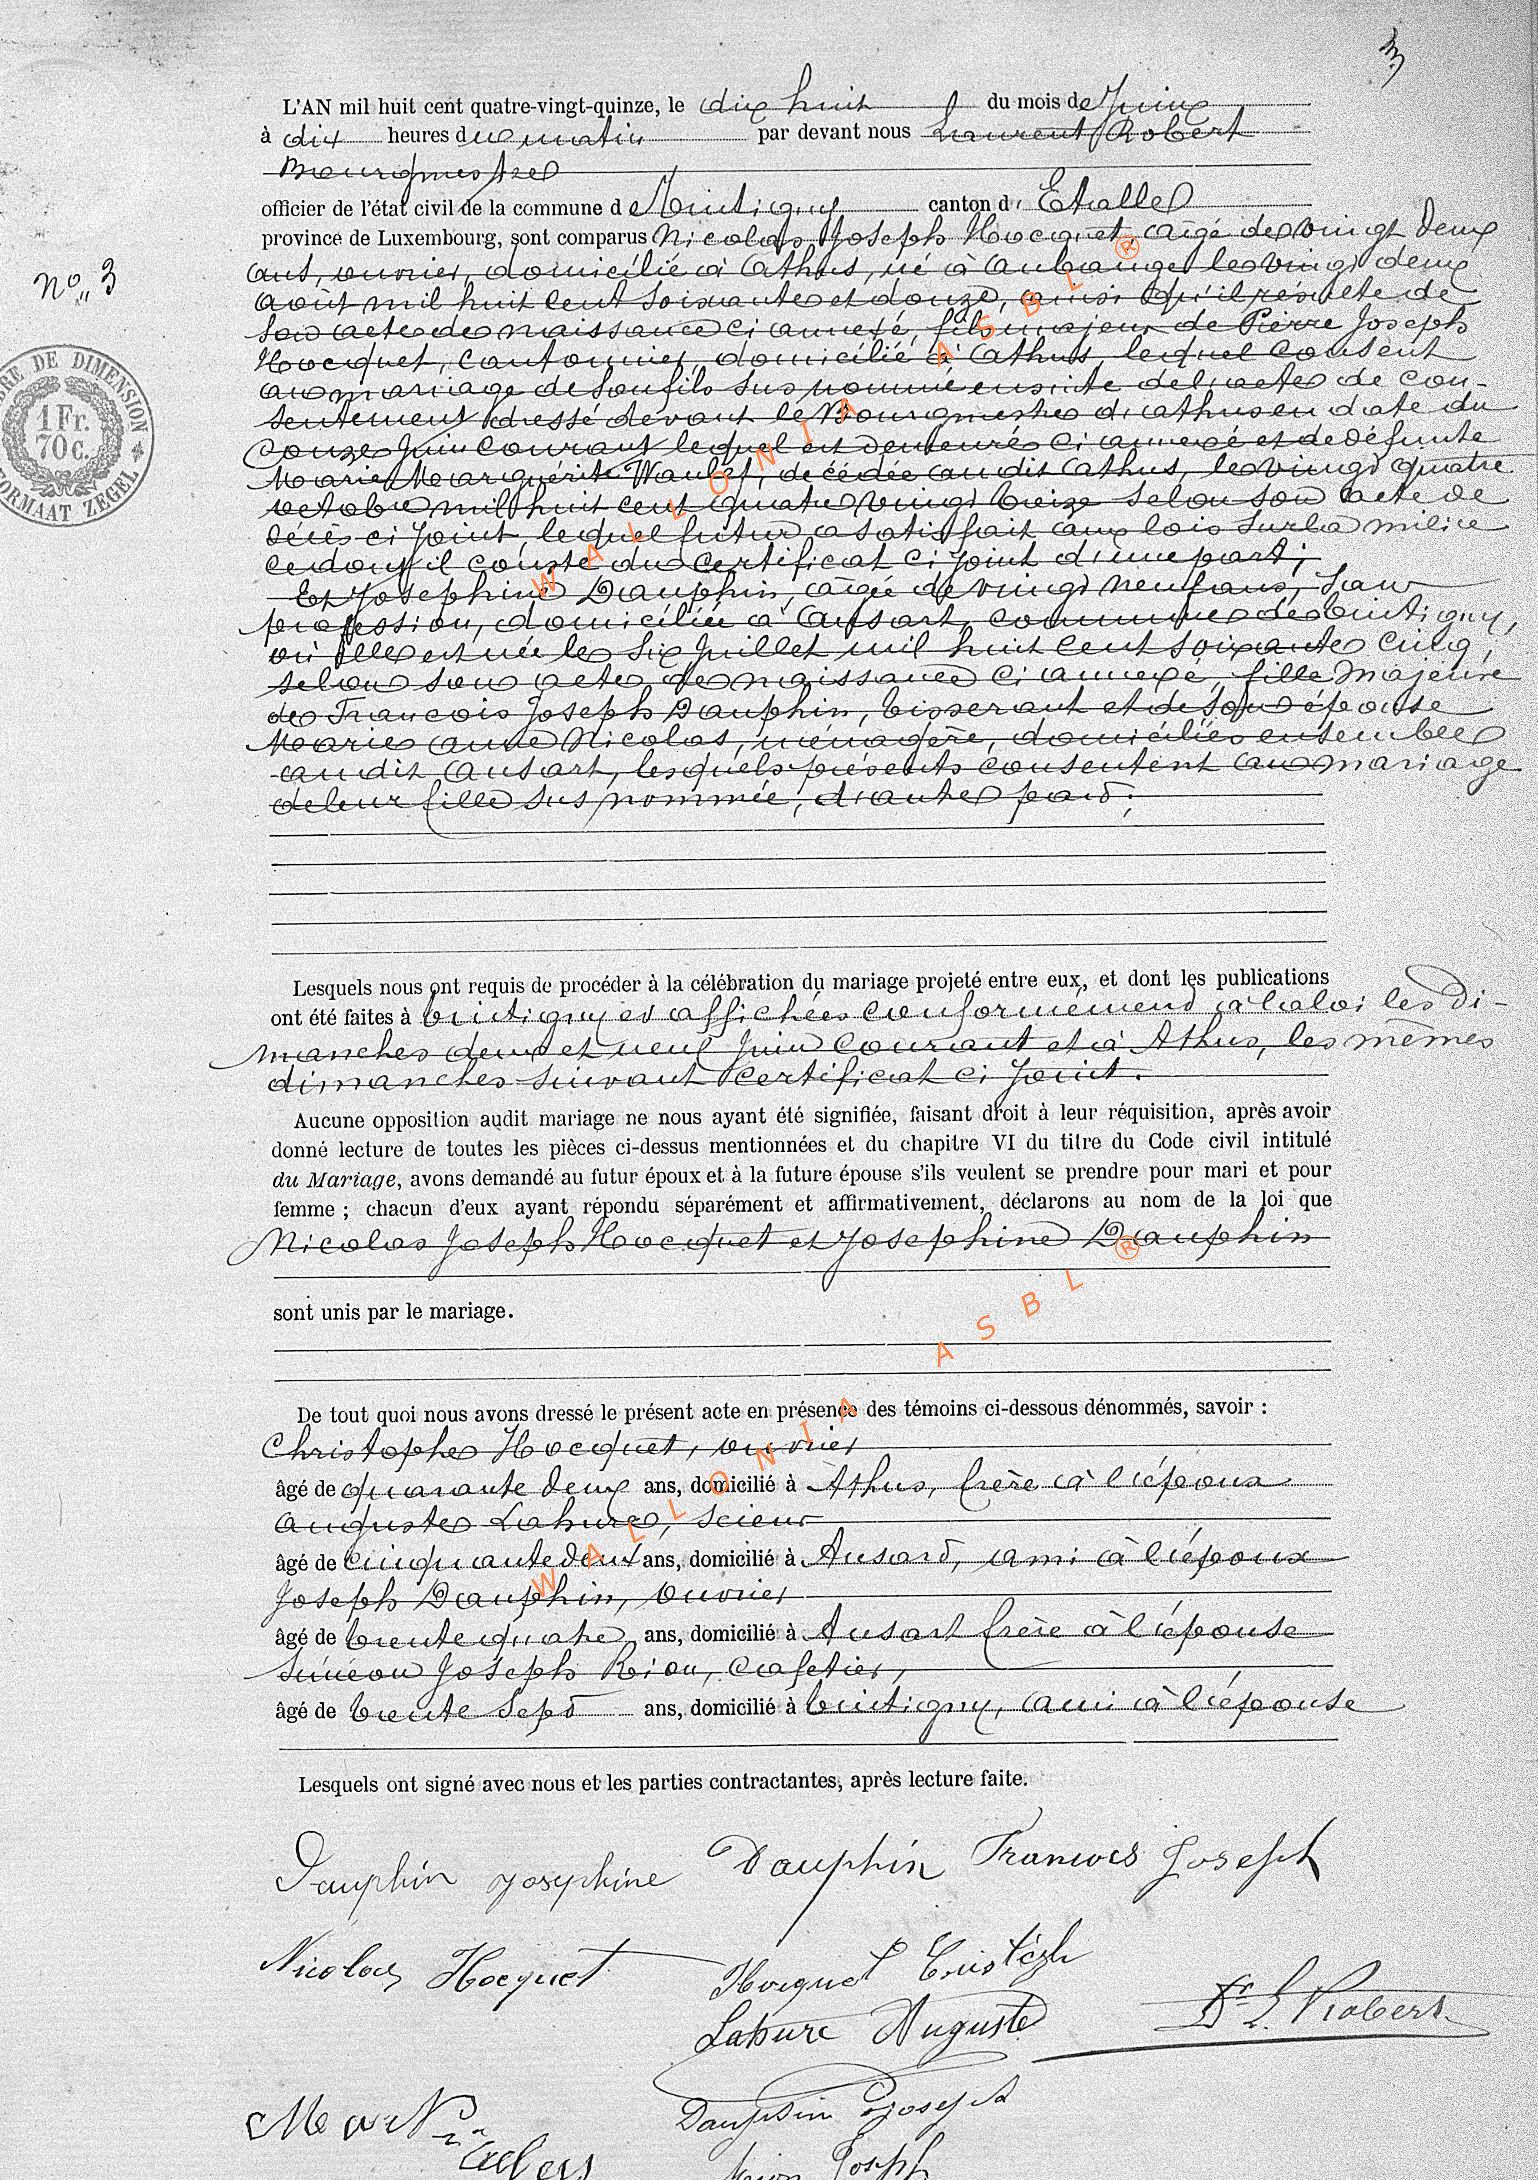 3
L'AN mil huit cent quatre-vingt-quinze, le dix huit du mois de Juin
à dix heures du matin par devant nous Laurent Robert
Bourgmestre
officier de l'état civil de la commune de Tintigny canton d'Etalle
province de Luxembourg, sont comparus Nicolas Joseph Hocquet, agé de vingt deux
ans, ouvrier, domicilié à Athus, né à Aubange le vingt deux
août mil huit cent soixante et douze, ainsi qu'il résulte de
son acte de naissance ci annexé, fils majeur de Pierre Joseph
Hocquet, cantonnier, domicilié à Athus, lequel consent
au mariage de son fils sus nommé ensuite de l'acte de con-
sentement dressé devant le Bourgmestre d'Athus en date du
onze Juin courant lequel est demeuré ci annexé et de défunte
Marie Marguérite Waulet, décédée audit Athus, le vingt quatre
octobre mil huit cent quatre vingt treize selon son acte de
décès ci joint, lequel futur a satisfait aux lois sur la milice
ce dont il conste du certificat ci joint d'une part;
Et Josephine Dauphin, agée de vingt neuf ans, sans
profession, domiciliée à Ansart, commune de Tintigny,
où elle est née le six Juillet mil huit cent soixante cinq,
selon son acte de naissance ci annexé, fille majeure
de François Joseph Dauphin, tisserant et de son épouse
Marie Anne Nicolas, ménagère, domiciliés ensemble
audit Ansart, lesquels présents consentent au mariage
de leur fille sus nommée, d'autre part;
No 3
TIMBRE DE DIMENSION
1 Fr.
70 c.
FORMAAT ZEGEL
Lesquels nous ont requis de procéder à la célébration du mariage projeté entre eux, et dont les publications
ont été faites à Tintigny et affichées conformément à la loi les di-
manches deux et neuf Juin courant et à Athus, les mêmes
dimanches suivant certificat ci joint.
Aucune opposition audit mariage ne nous ayant été signifiée, faisant droit à leur réquisition, après avoir
donné lecture de toutes les pièces ci-dessus mentionnées et du chapitre VI du titre du Code civil intitulé
du Mariage, avons demandé au futur époux et à la future épouse s'ils veulent se prendre pour mari et pour
femme ; chacun d'eux ayant répondu séparément et affirmativement, déclarons au nom de la loi que
Nicolas Joseph Hocquet et Josephine Dauphin
sont unis par le mariage.
De tout quoi nous avons dressé le présent acte en présence des témoins ci-dessous dénommés, savoir :
Christophe Hocquet, ouvrier
âgé de quarante deux ans, domicilié à Athus, frère à l'époux
Auguste Lahure, scieur
âgé de cinquante deux ans, domicilié à Ansart, ami à l'époux
Joseph Dauphin, ouvrier
âgé de trente quatre ans, domicilié à Ansart frère à l'épouse
Siméon Joseph Rion, cafetier,
âgé de trente sept ans, domicilié à Tintigny, ami à l'épouse
Lesquels ont signé avec nous et les parties contractantes, après lecture faite.
Dauphin Josephine Dauphin Francois Joseph
Nicolas Hocquet Hocquet
Lahure Auguste Dr L. Robert
Dauphin Joseph
Joseph
WALLONIA ASBL ®
WALLONIA ASBL ®